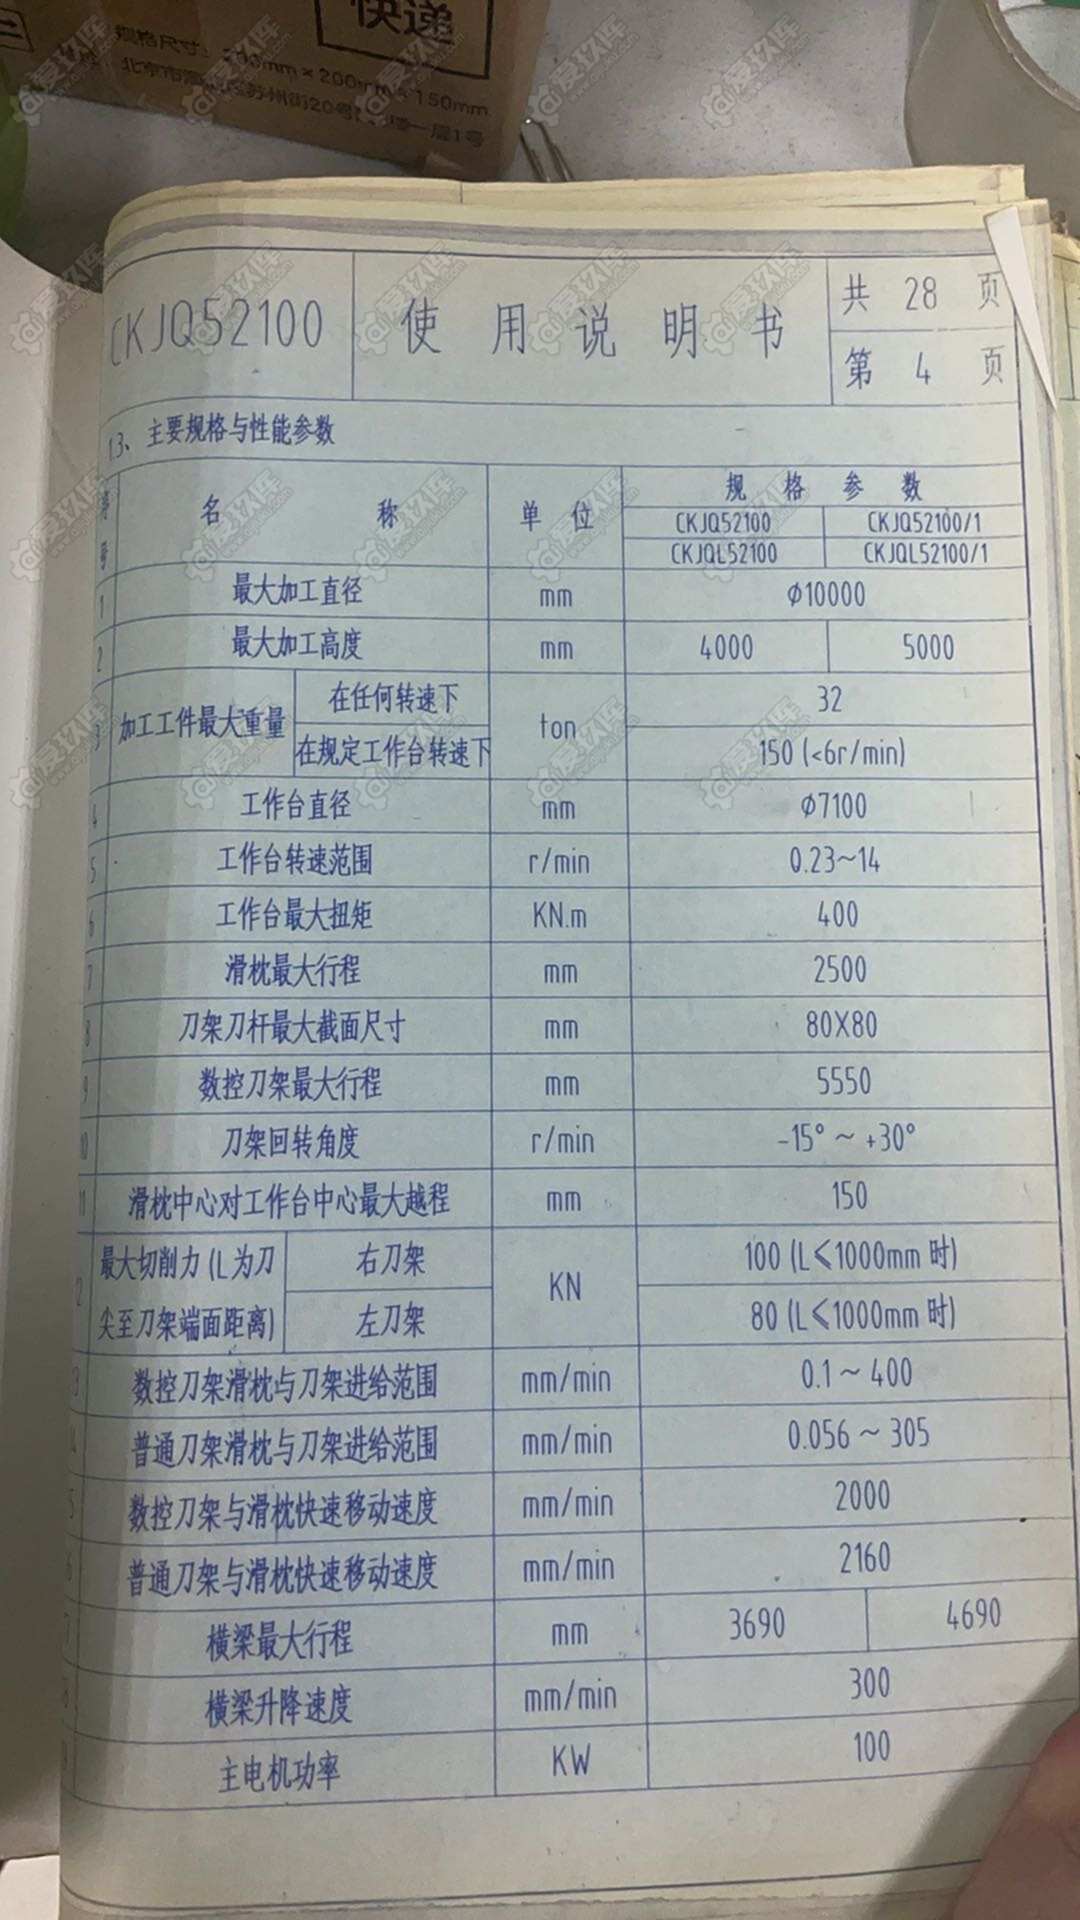 快递
规格尺寸：290mm×200mm×150mm
苏州街20号
一层1号
CKJQ52100
使用说明书
共 28 页
第 4 页
1.3、主要规格与性能参数
序号 名称 单位 规格参数
CKJQ52100 CKJQ52100/1
CKJQL52100 CKJQL52100/1
1 最大加工直径 mm Φ10000
2 最大加工高度 mm 4000 5000
3 加工工件最大重量 在任何转速下 ton 32
在规定工作台转速下 150 (<6r/min)
4 工作台直径 mm Φ7100
5 工作台转速范围 r/min 0.23~14
6 工作台最大扭矩 KN.m 400
7 滑枕最大行程 mm 2500
8 刀架刀杆最大截面尺寸 mm 80X80
9 数控刀架最大行程 mm 5550
10 刀架回转角度 r/min -15°~+30°
11 滑枕中心对工作台中心最大越程 mm 150
2 最大切削力 (L为刀尖至刀架端面距离) 右刀架 KN 100 (L⩽1000mm 时)
左刀架 80 (L⩽1000mm 时)
3 数控刀架滑枕与刀架进给范围 mm/min 0.1~400
4 普通刀架滑枕与刀架进给范围 mm/min 0.056~305
5 数控刀架与滑枕快速移动速度 mm/min 2000
6 普通刀架与滑枕快速移动速度 mm/min 2160
7 横梁最大行程 mm 3690 4690
8 横梁升降速度 mm/min 300
主电机功率 KW 100
爱玖库